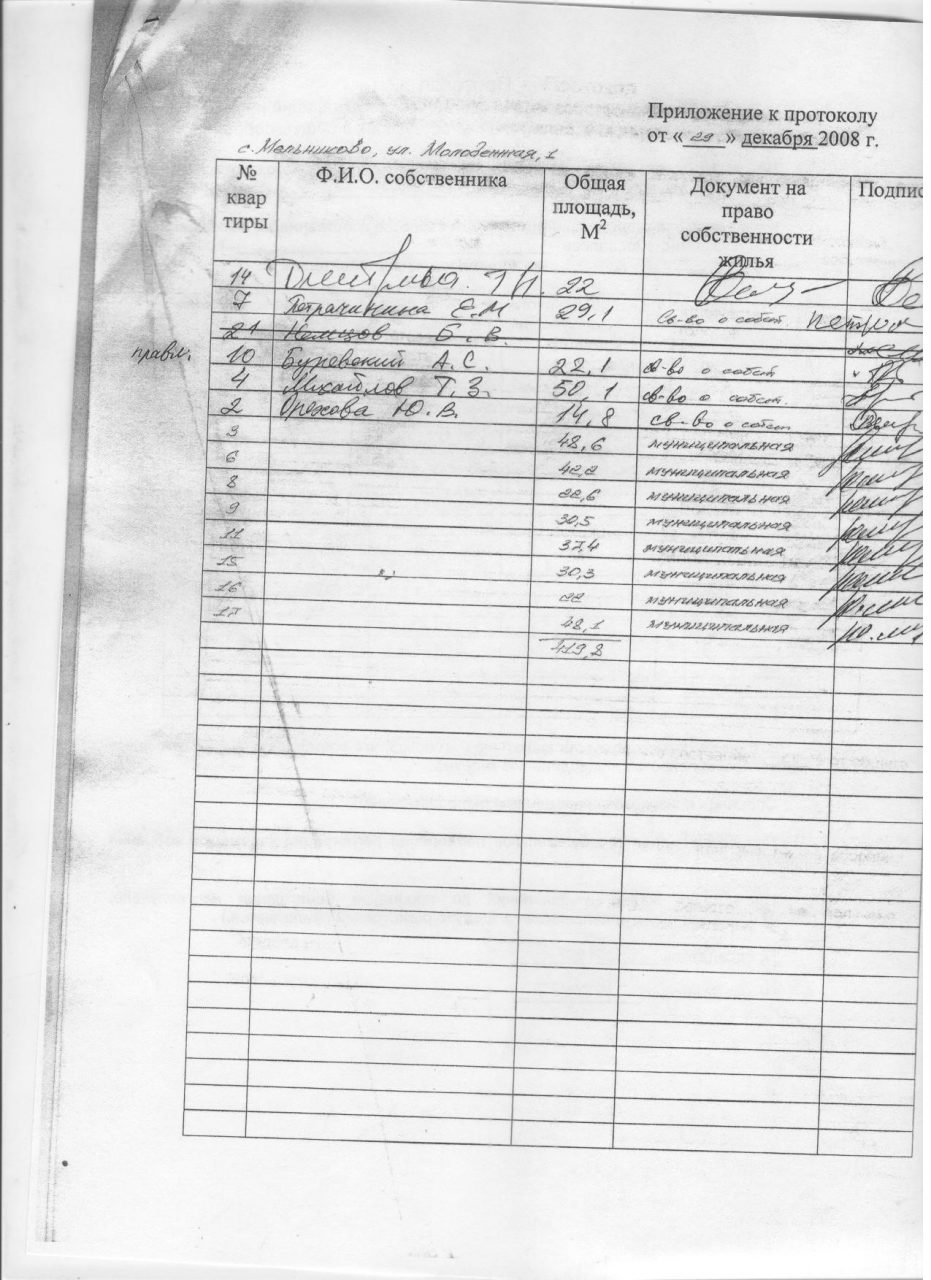 Приложение к протоколу
от « 29 » декабря 2008 г.
с. Мельниково, ул. Молодежная, 1
№ квар тиры Ф.И.О. собственника Общая площадь, М2 Документ на право собственности жилья Подпис
14 22
7 Петрачинина Е.М 29,1 св-во о собст Петрач
21 Немцов Б. В.
правл. 10 Буревский А.С. 22,1 св-во о собст
4 Михайлов Т.З. 50,1 св-во о собст.
2 Орехова Ю.В. 14,8 св-во о собст
3 48,6 муниципальная
6 42,2 муниципальная
8 22,6 муниципальная
9 30,5 муниципальная
11 37,4 муниципальная
15 30,3 муниципальная
16 22 муниципальная
17 48,1 муниципальная
419,8